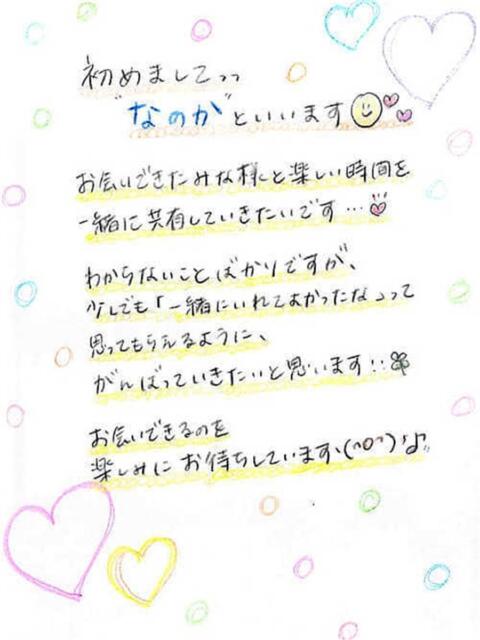 初めましてっっ
"なのか"といいます
お会いできたみな様と楽しい時間を
一緒に共有していきたいです…
わからないことばかりですが、
少しでも「一緒にいれてよかったなっって
思ってもらえるように、
がんばっていきたいと思います!!
お会いできるのを
楽しみにお待ちしています、(^o^)'♪"